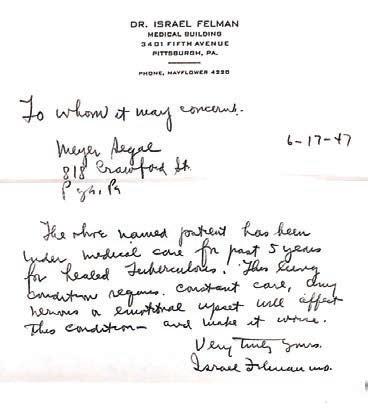 DR. ISRAEL FELMAN
MEDICAL BUILDING
3401 FIFTH AVENUE
PITTSBURGH, PA.
PHONE, MAYFLOWER 4220
To whom it may concern.
6-17-47
Meyer Segal
818 Crawford St.
Pgh, Pa
The above named patient has been
under medical care for past 5 years
for healed Tuberculous. This lung
condition requires constant care, any
nervous or emotional upset will affect
this condition - and make it worse.
Very Truly Yours.
Israel Felman MD.